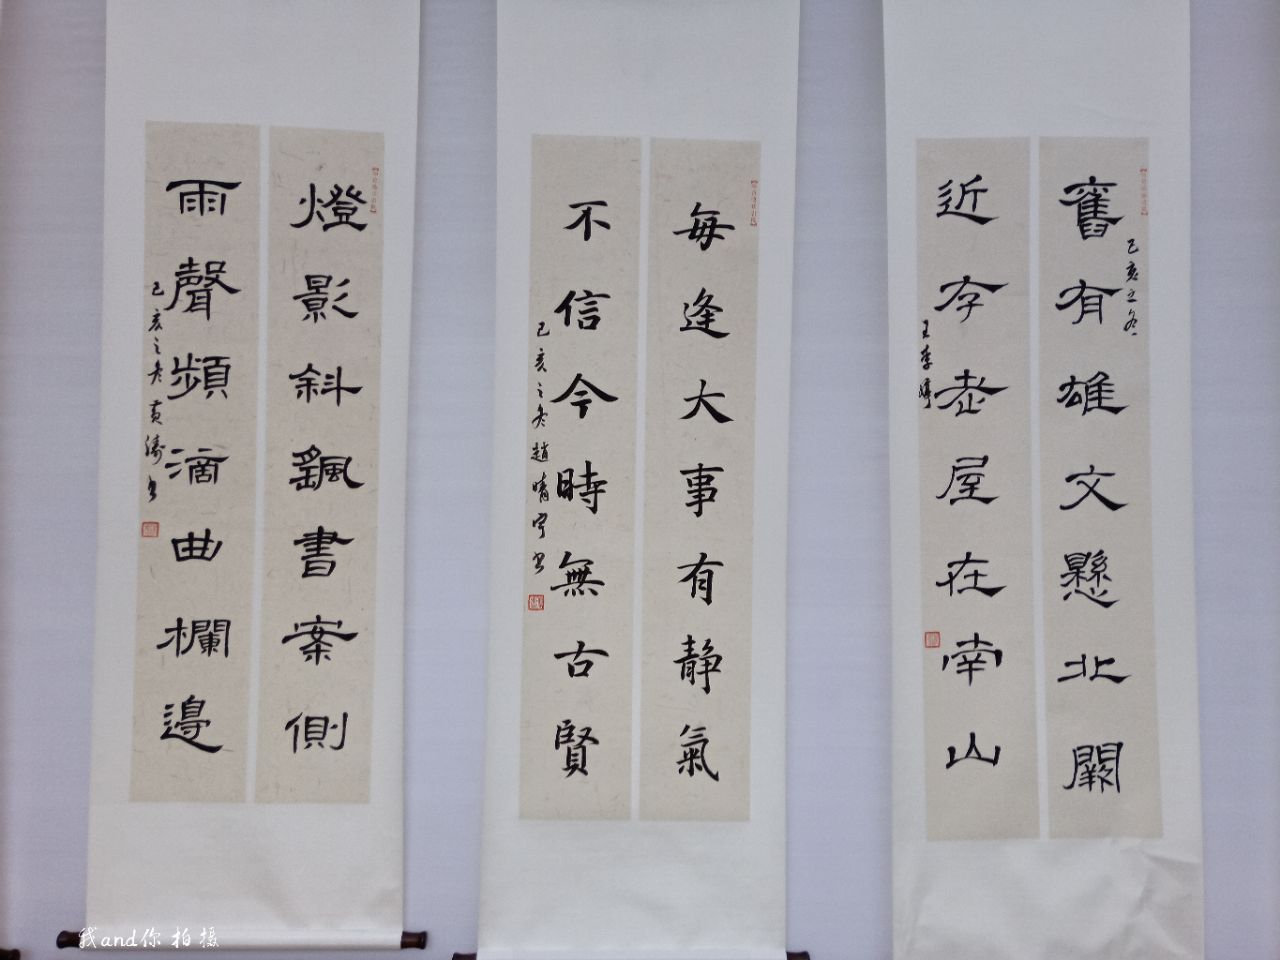 舊有雄文懸北闕
己亥之冬
近存老屋在南山
王李
每逢大事有静氣
不信今時無古賢
己亥之冬趙晴宇書
燈影斜飄書案側
雨聲頻滴曲欄邊
己亥之冬黄濤書
我and你 拍摄